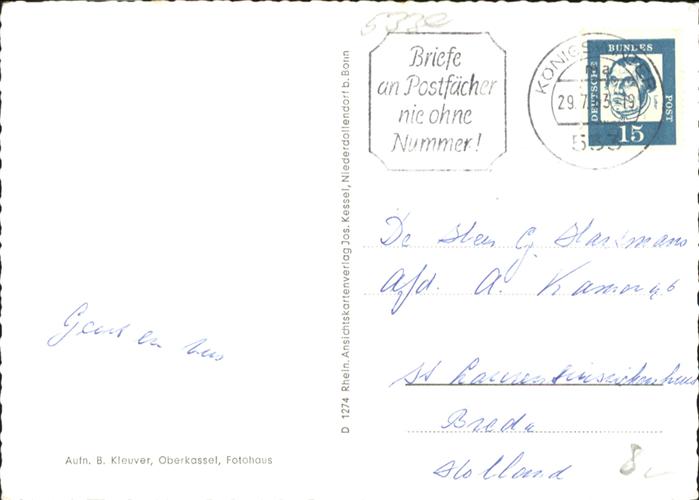 533c
Briefe
an Postfächer
nie ohne
Nummer!
KÖNIGSWINTER
29.7.
533
DEUTSCHE BUNDESPOST
15
D 1274 Rhein. Ansichtskartenverlag Jos. Kessel, Niederdollendorf b. Bonn
De Heer G. Starkmans
Afd. A. Kamer 46
St Laurentiusziekenhuis
Breda
Holland
Groet en
Aufn. B. Kleuver, Oberkassel, Fotohaus